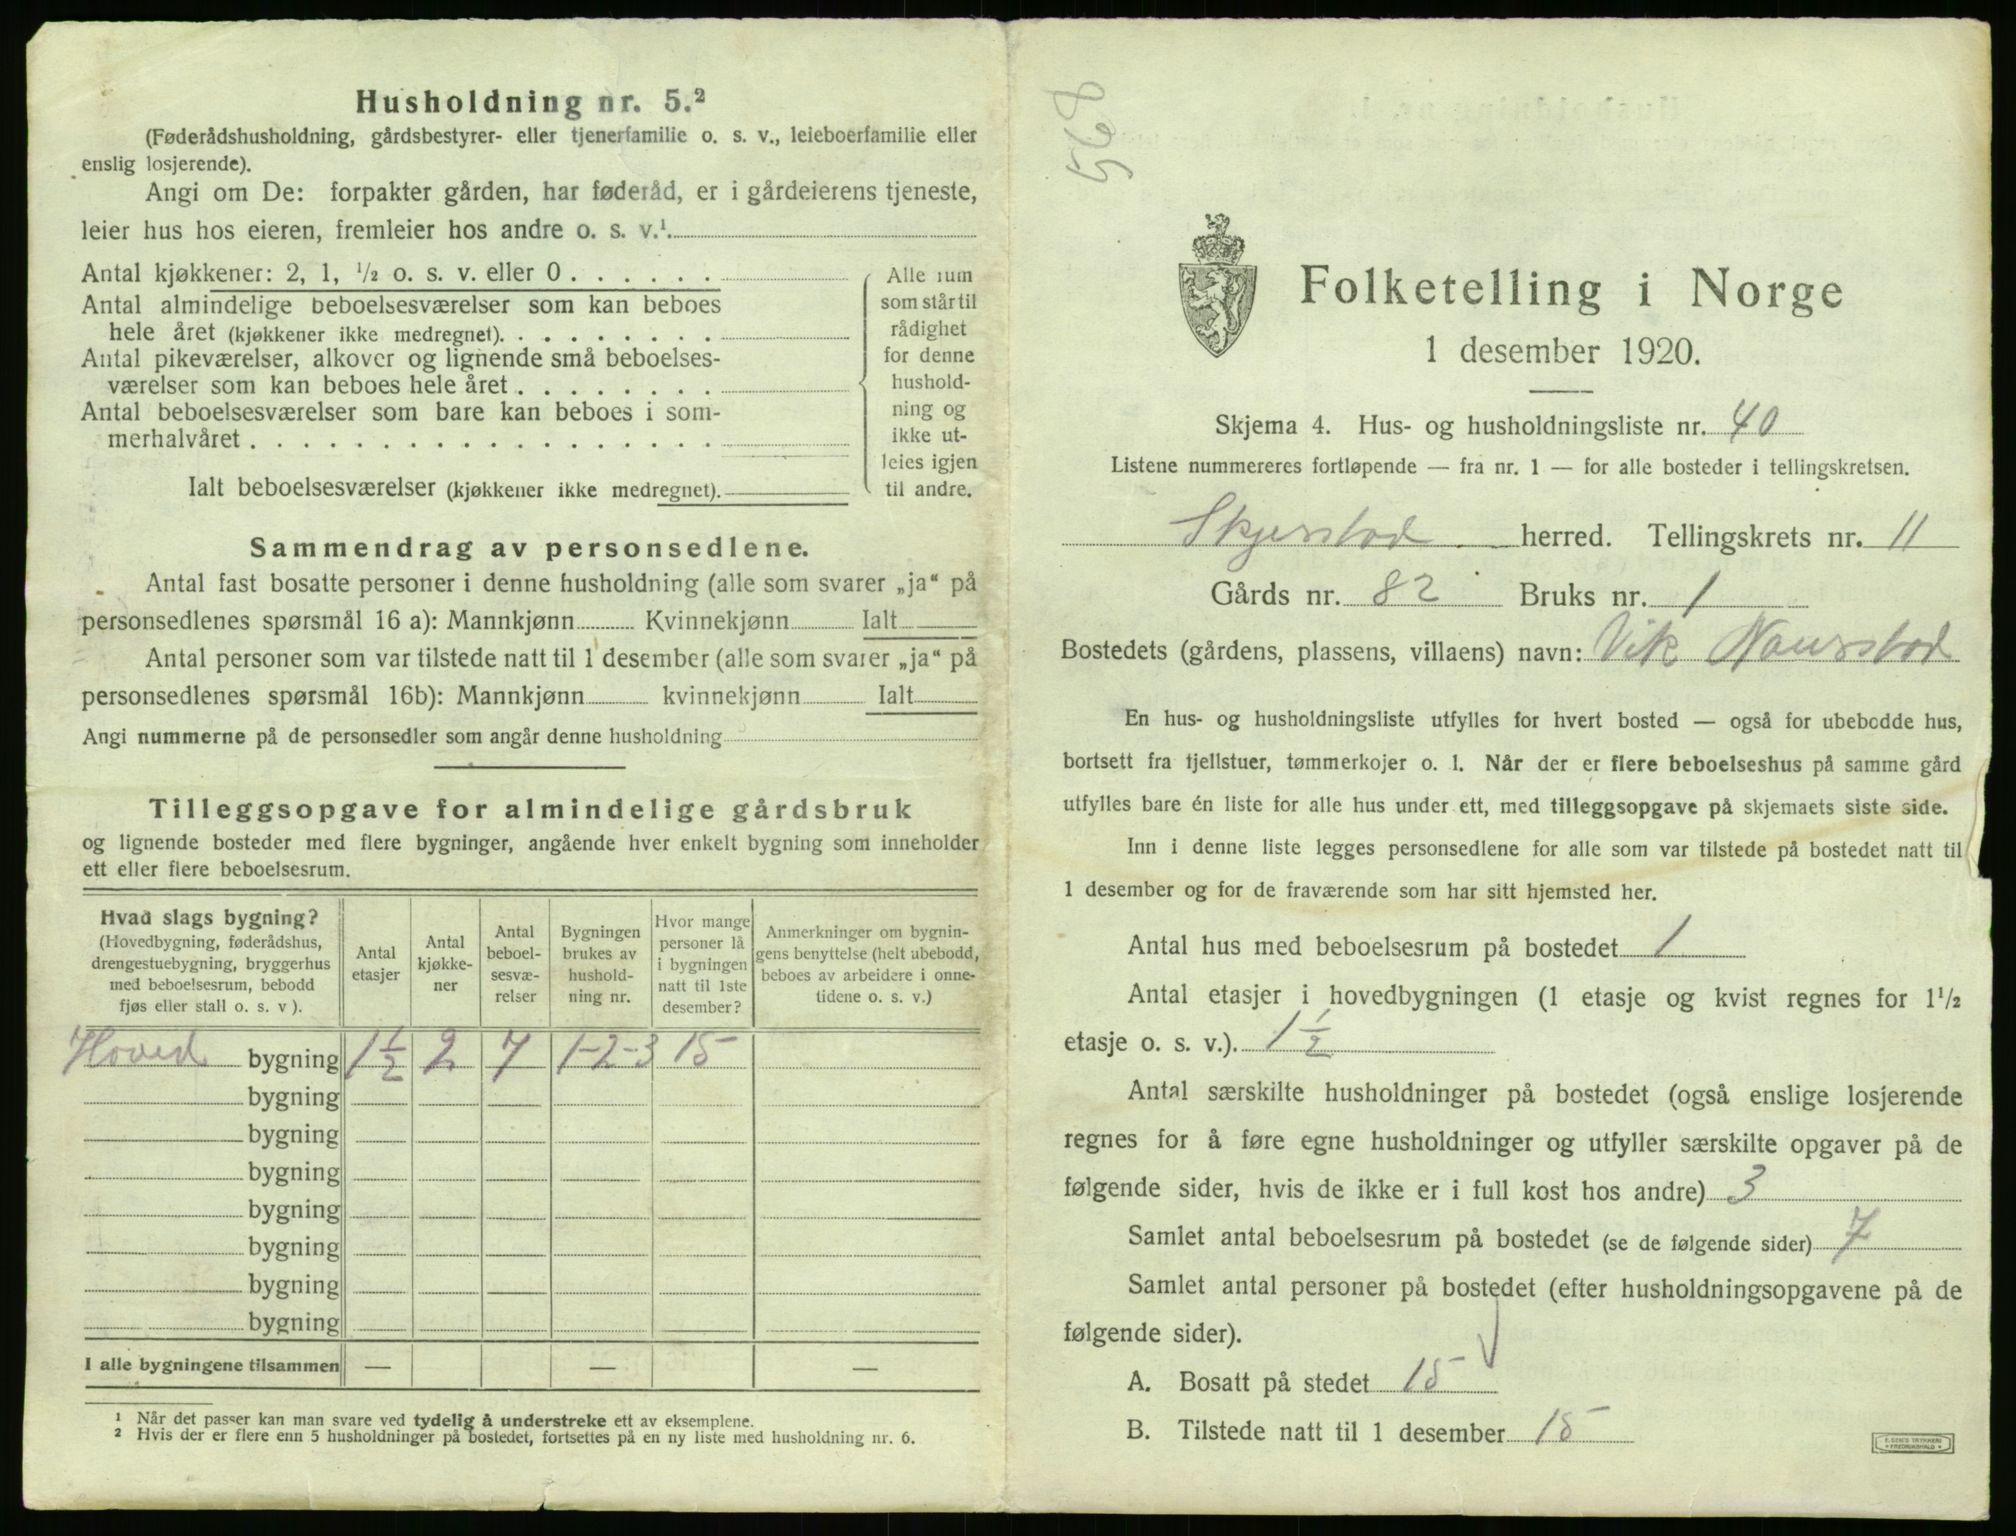 Husholdning nr. 5.²
(Føderådshusholdning, gårdsbestyrer- eller tjenerfamilie o. s. v., leieboerfamilie eller
enslig losjerende).
Angi om De: forpakter gården, har føderåd, er i gårdeierens tjeneste,
leier hus hos eieren, fremleier hos andre o. s. v.¹
Antal kjøkkener: 2, 1, ½ o. s. v. eller 0 . . . . . .
Antal almindelige beboelsesværelser som kan beboes
hele året (kjøkkener ikke medregnet). . . . . . . . .
Antal pikeværelser, alkover og lignende små beboelses-
værelser som kan beboes hele året . . . . . . . .
Antal beboelsesværelser som bare kan beboes i som-
merhalvåret . . . . . . . . . . . . . . . . . .
Ialt beboelsesværelser (kjøkkener ikke medregnet).
Alle rum
som står til
rådighet
for denne
hushold-
ning og
ikke ut-
leies igjen
til andre.
Sammendrag av personsedlene.
Antal fast bosatte personer i denne husholdning (alle som svarer „ja“ på
personsedlenes spørsmål 16 a): Mannkjønn Kvinnekjønn Ialt
Antal personer som var tilstede natt til 1 desember (alle som svarer „ja“ på
personsedlenes spørsmål 16b): Mannkjønn kvinnekjønn Ialt
Angi nummerne på de personsedler som angår denne husholdning
Tilleggsopgave for almindelige gårdsbruk
og lignende bosteder med flere bygninger, angående hver enkelt bygning som inneholder
ett eller flere beboelsesrum.
Hvad slags bygning?
(Hovedbygning, føderådshus,
drengestuebygning, bryggerhus
med beboelsesrum, bebodd
fjøs eller stall o. s. v ).
Antal
etasjer
Antal
kjøkke-
ner
Antal
beboel-
sesvæ-
relser
Bygningen
brukes av
hushold-
ning nr.
Hvor mange
personer lå
i bygningen
natt til 1ste
desember?
Anmerkninger om bygnin-
gens benyttelse (helt ubebodd,
beboes av arbeidere i onne-
tidene o. s. v.)
Hoved bygning 1½ 2 7 1-2-3 15
bygning
bygning
bygning
bygning
bygning
bygning
bygning
I alle bygningene tilsammen — — —
¹ Når det passer kan man svare ved tydelig å understreke ett av eksemplene.
² Hvis der er flere enn 5 husholdninger på bostedet, fortsettes på en ny liste med husholdning nr. 6.
568
Folketelling i Norge
1 desember 1920.
Skjema 4. Hus- og husholdningsliste nr. 40
Listene nummereres fortløpende — fra nr. 1 — for alle bosteder i tellingskretsen.
Skjerstad herred. Tellingskrets nr. 11
Gårds nr. 82 Bruks nr. 1
Bostedets (gårdens, plassens, villaens) navn: Vik Naurstad
En hus- og husholdningsliste utfylles for hvert bosted — også for ubebodde hus,
bortsett fra fjellstuer, tømmerkojer o. l. Når der er flere beboelseshus på samme gård
utfylles bare én liste for alle hus under ett, med tilleggsopgave på skjemaets siste side.
Inn i denne liste legges personsedlene for alle som var tilstede på bostedet natt til
1 desember og for de fraværende som har sitt hjemsted her.
Antal hus med beboelsesrum på bostedet 1
Antal etasjer i hovedbygningen (1 etasje og kvist regnes for 1½
etasje o. s. v.). 1½
Antal særskilte husholdninger på bostedet (også enslige losjerende
regnes for å føre egne husholdninger og utfyller særskilte opgaver på de
følgende sider, hvis de ikke er i full kost hos andre) 3
Samlet antal beboelsesrum på bostedet (se de følgende sider) 7
Samlet antal personer på bostedet (efter husholdningsopgavene på de
følgende sider).
A. Bosatt på stedet 15
B. Tilstede natt til 1 desember 15